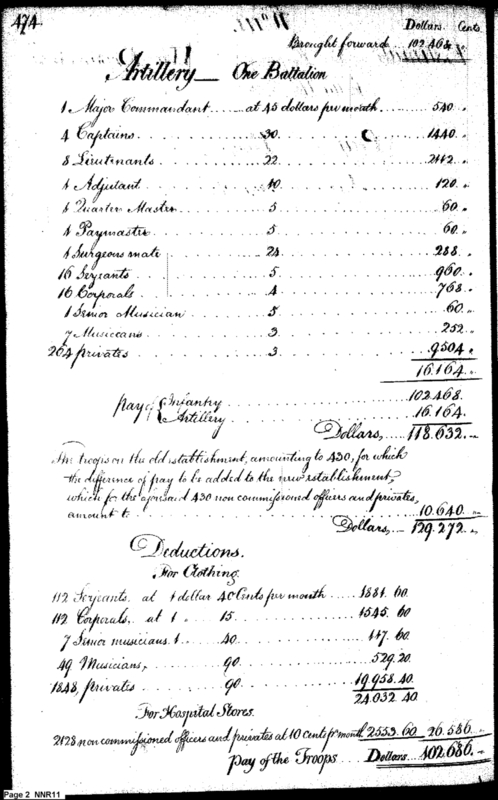 474
Dollars. Cents
Brought forward 102.468 "
Artillery — One Battalion
1 Major Commandant at 45 dollars per month 540 "
4 Captains 30 1440 "
8 Lieutenants 22 2112 "
1 Adjutant 10 120 "
1 Quarter Master 5 60 "
1 Paymaster 5 60 "
1 Surgeons mate 24 288 "
16 Serjeants 5 960 "
16 Corporals 4 768 "
1 Senior Musician 5 60 "
7 Musicians 3 252 "
264 privates 3 9504 "
16.164 "
pay of { Infantry 102.468.
Artillery 16.164.
Dollars, 118.632. "
The troops on the old establishment, amounting to 430, for which
the difference of pay to be added to the new establishment,
which for the aforesaid 430 non commissioned officers and privates,
amount to 10.640. "
Dollars, 129.272. "
Deductions.
For Clothing.
112 Serjeants at 1 dollar 40 Cents per month 1881.60
112 Corporals, at 1 " 15 1545.60
7 Senior musicians 1 40 117.60
49 Musicians, 90 529.20
1848 privates 90 19,958.40
24.032.40
For Hospital Stores.
2128 non commissioned officers and privates at 10 cents pr month 2553.60 26.586 "
Pay of the Troops Dollars 102.686. "
Page 2 NNR11